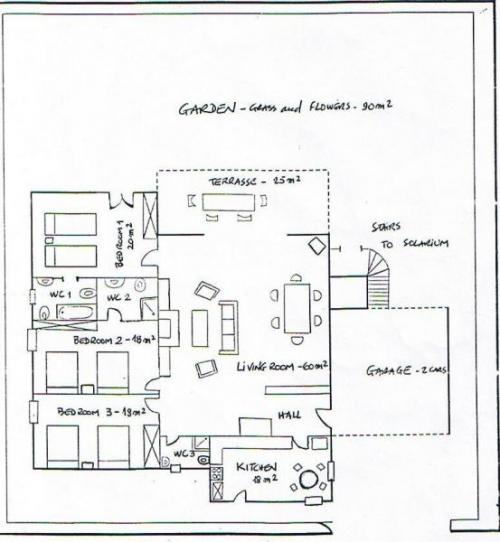 GARDEN - GRASS and FLOWERS - 90m²
TERRASSE - 25m²
STAIRS
TO SOLARIUM
BEDROOM 1
20m²
WC1
WC 2
BEDROOM 2 - 18m²
LIVING ROOM - 60m²
GARAGE - 2 CARS
BEDROOM 3 - 18m²
HALL
WC3
KITCHEN
18m²